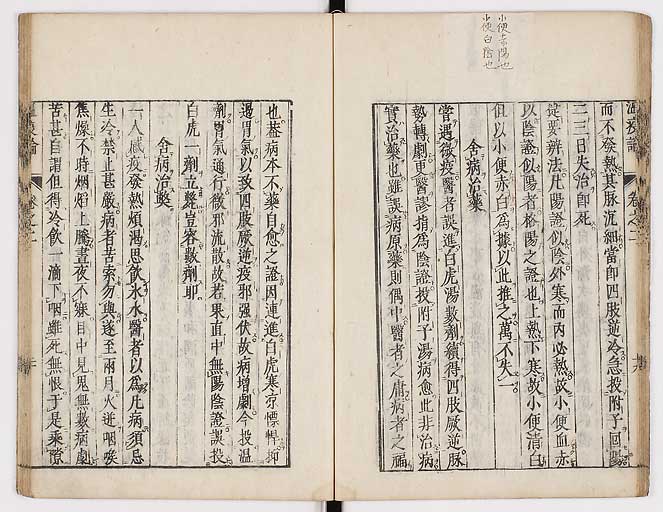 小便赤陽也
小便白陰也
温疫論
卷之二
而不發熱其脉沉細當卽四肢逆冷急投附子回陽
二三日失治卽死
捷要辨法凡陽證似陰外寒而內必熱故小便血赤
以陰證似陽者格陽之證也上熱下寒故小便清白
但以小便赤白爲據以此推之萬不失一
舍病治藥
嘗遇微疫醫者誤進白虎湯數劑續得四肢厥逆脉
勢轉劇更醫謬指爲陰證投附子湯病愈此非治病
實治藥也雖誤病原藥則偶中醫者之庸病者之福
也葢病本不藥自愈之證因連進白虎寒凉慓悍抑
遏胃氣以致四肢厥逆疫邪强伏故病增劇今投温
劑胃氣通行微邪流散故若果直中無陽陰證誤投
白虎一劑立斃豈容數劑耶
舍病治藥
一人感疫發熱煩渴思飲冰水醫者以爲凡病須忌
生冷禁止甚嚴病者苦索勿與遂至兩目火迸咽喉
焦燥不時烟熖上騰晝夜不寐目中見鬼無數病劇
苦甚自謂但得冷飲一滴下咽雖死無恨于是乘隙
卷之二